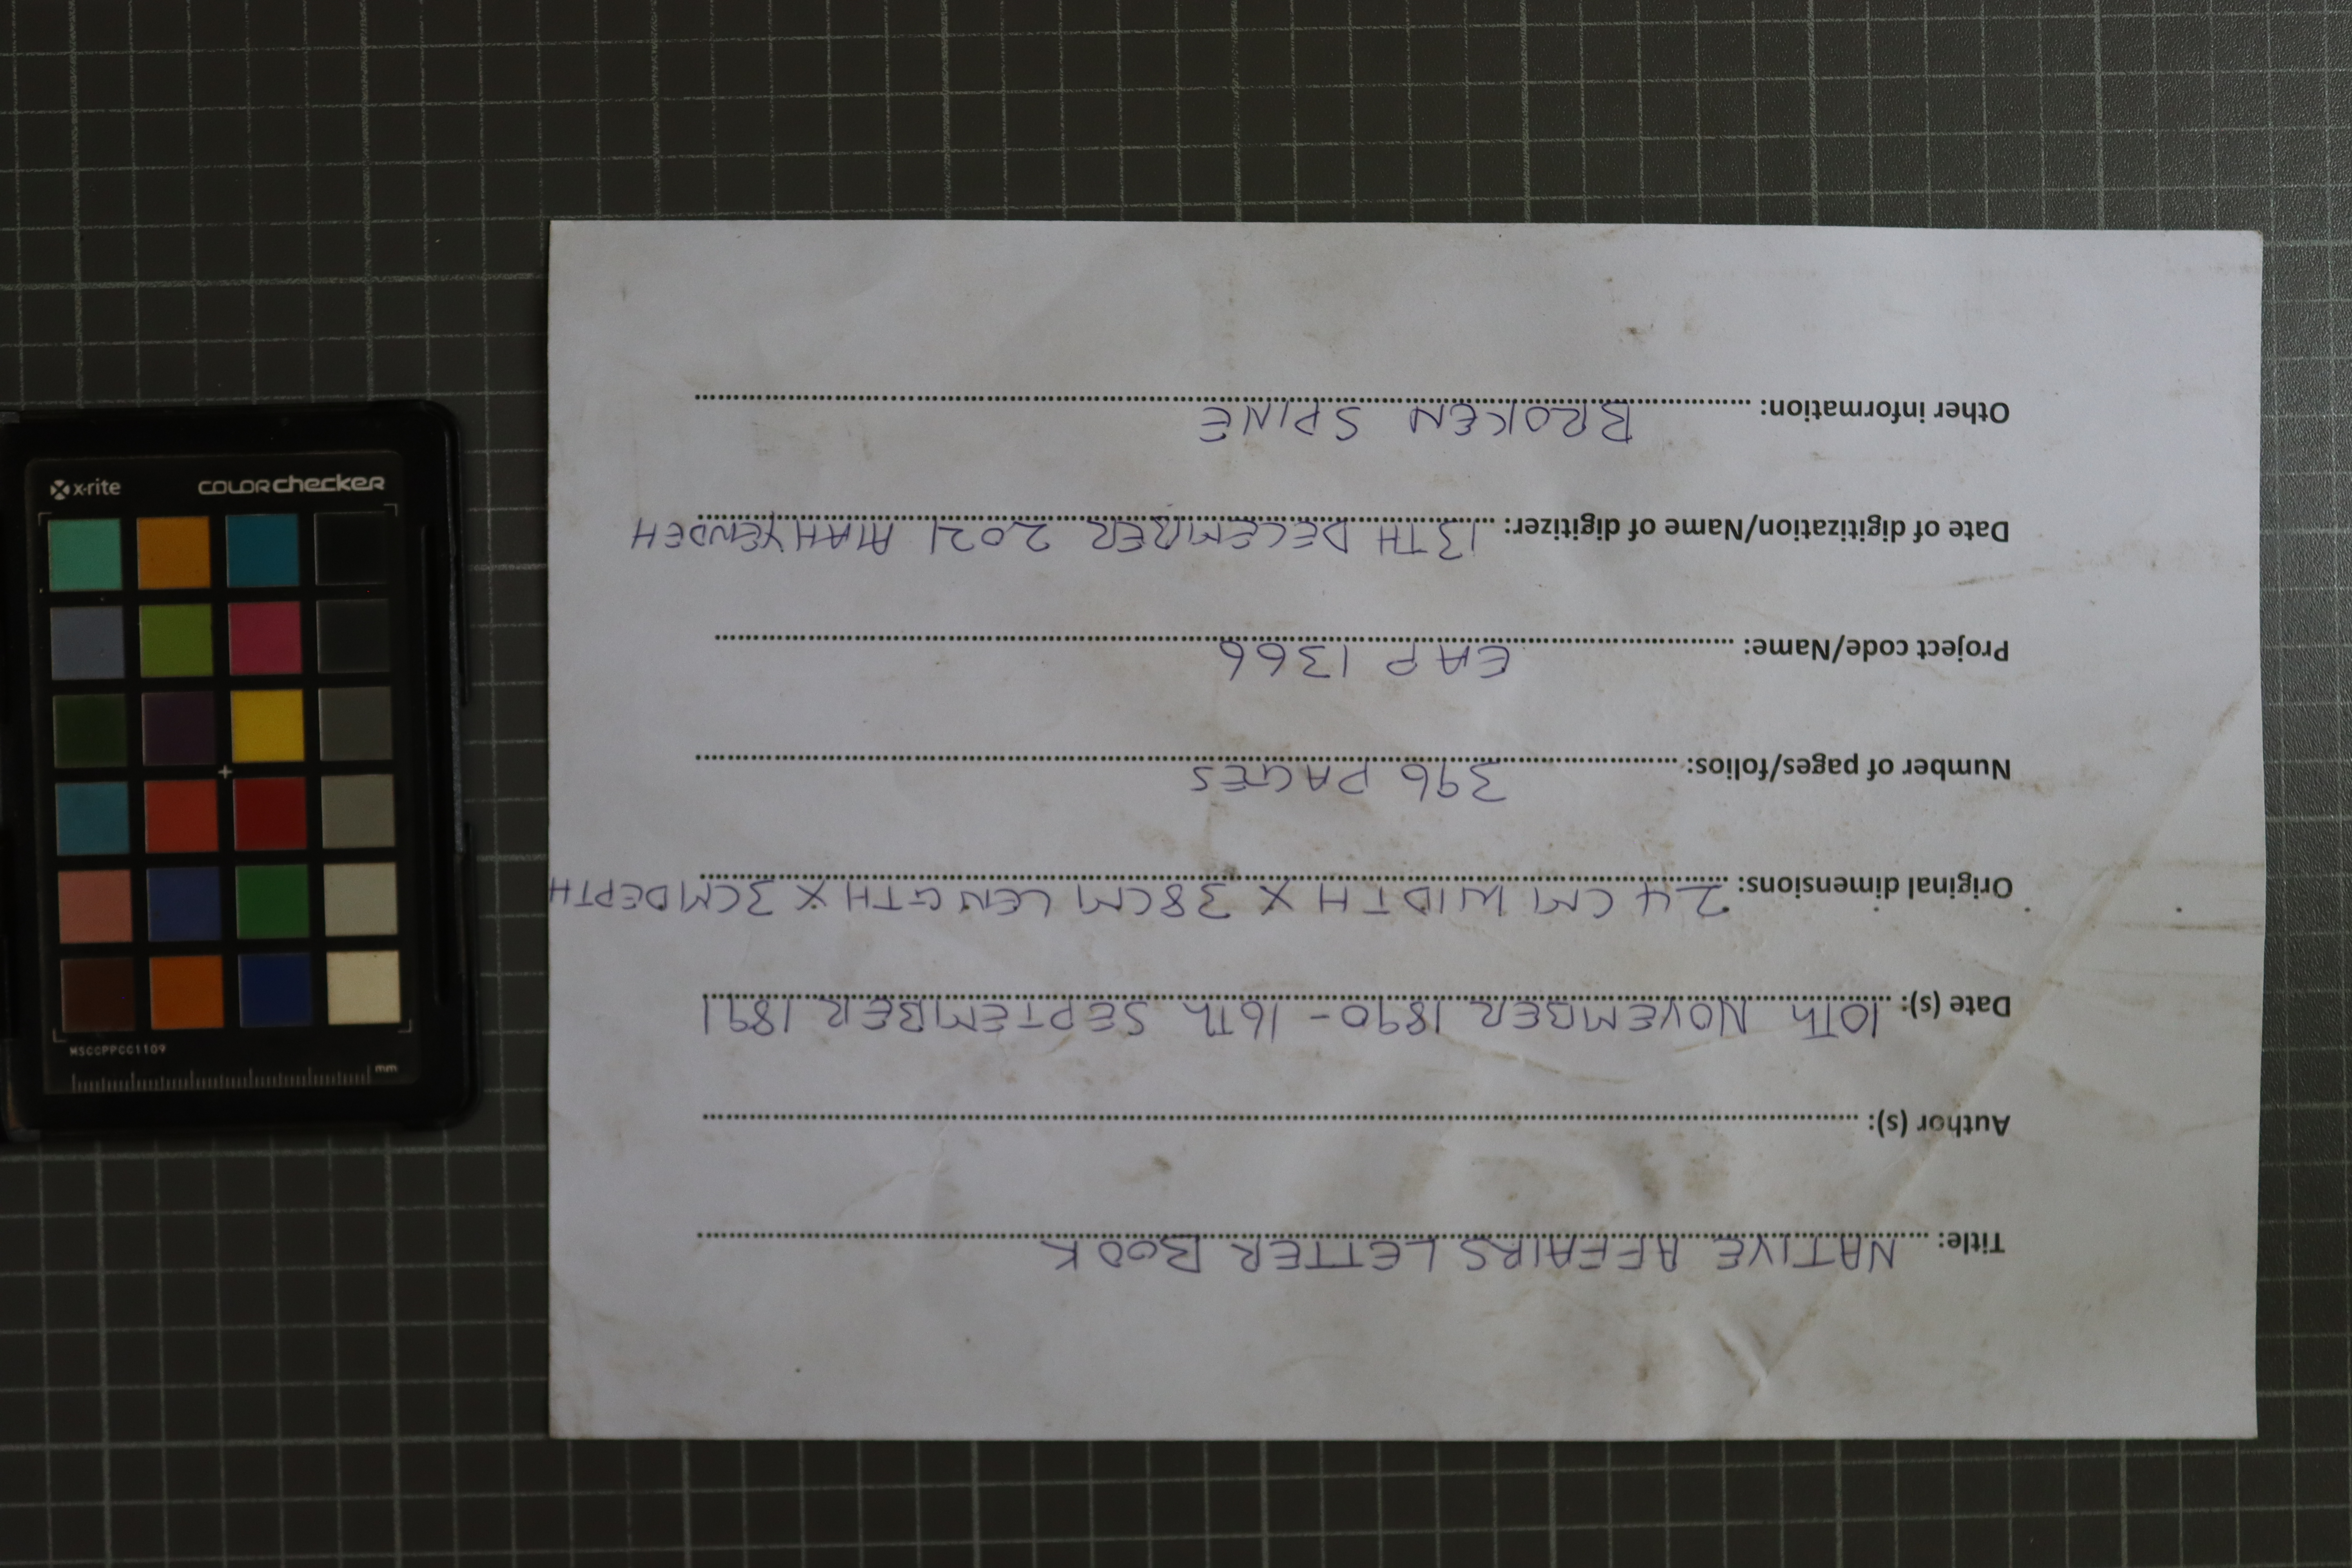 Title: NATIVE AFFAIRS LETTER BOOK
Author (s):
Date (s): 10Th NOVEMBER 1890 - 16Th SEPTEMBER 1891
Original dimensions: 24 CM WIDTH X 38CM LENGTH X 3CM DEPTH
Number of pages/folios: 396 PAGES
Project code/Name: EAP 1366
Date of digitization/Name of digitizer: 13TH DECEMBER 2021 ALAH YENDEH
Other information: BROKEN SPINE
x-rite colorchecker
MSCCPPCC1109
mm